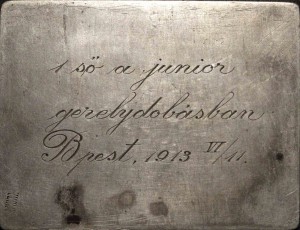 1 ső a junior
gerelydobásban
Bpest, 1913 VI/11.